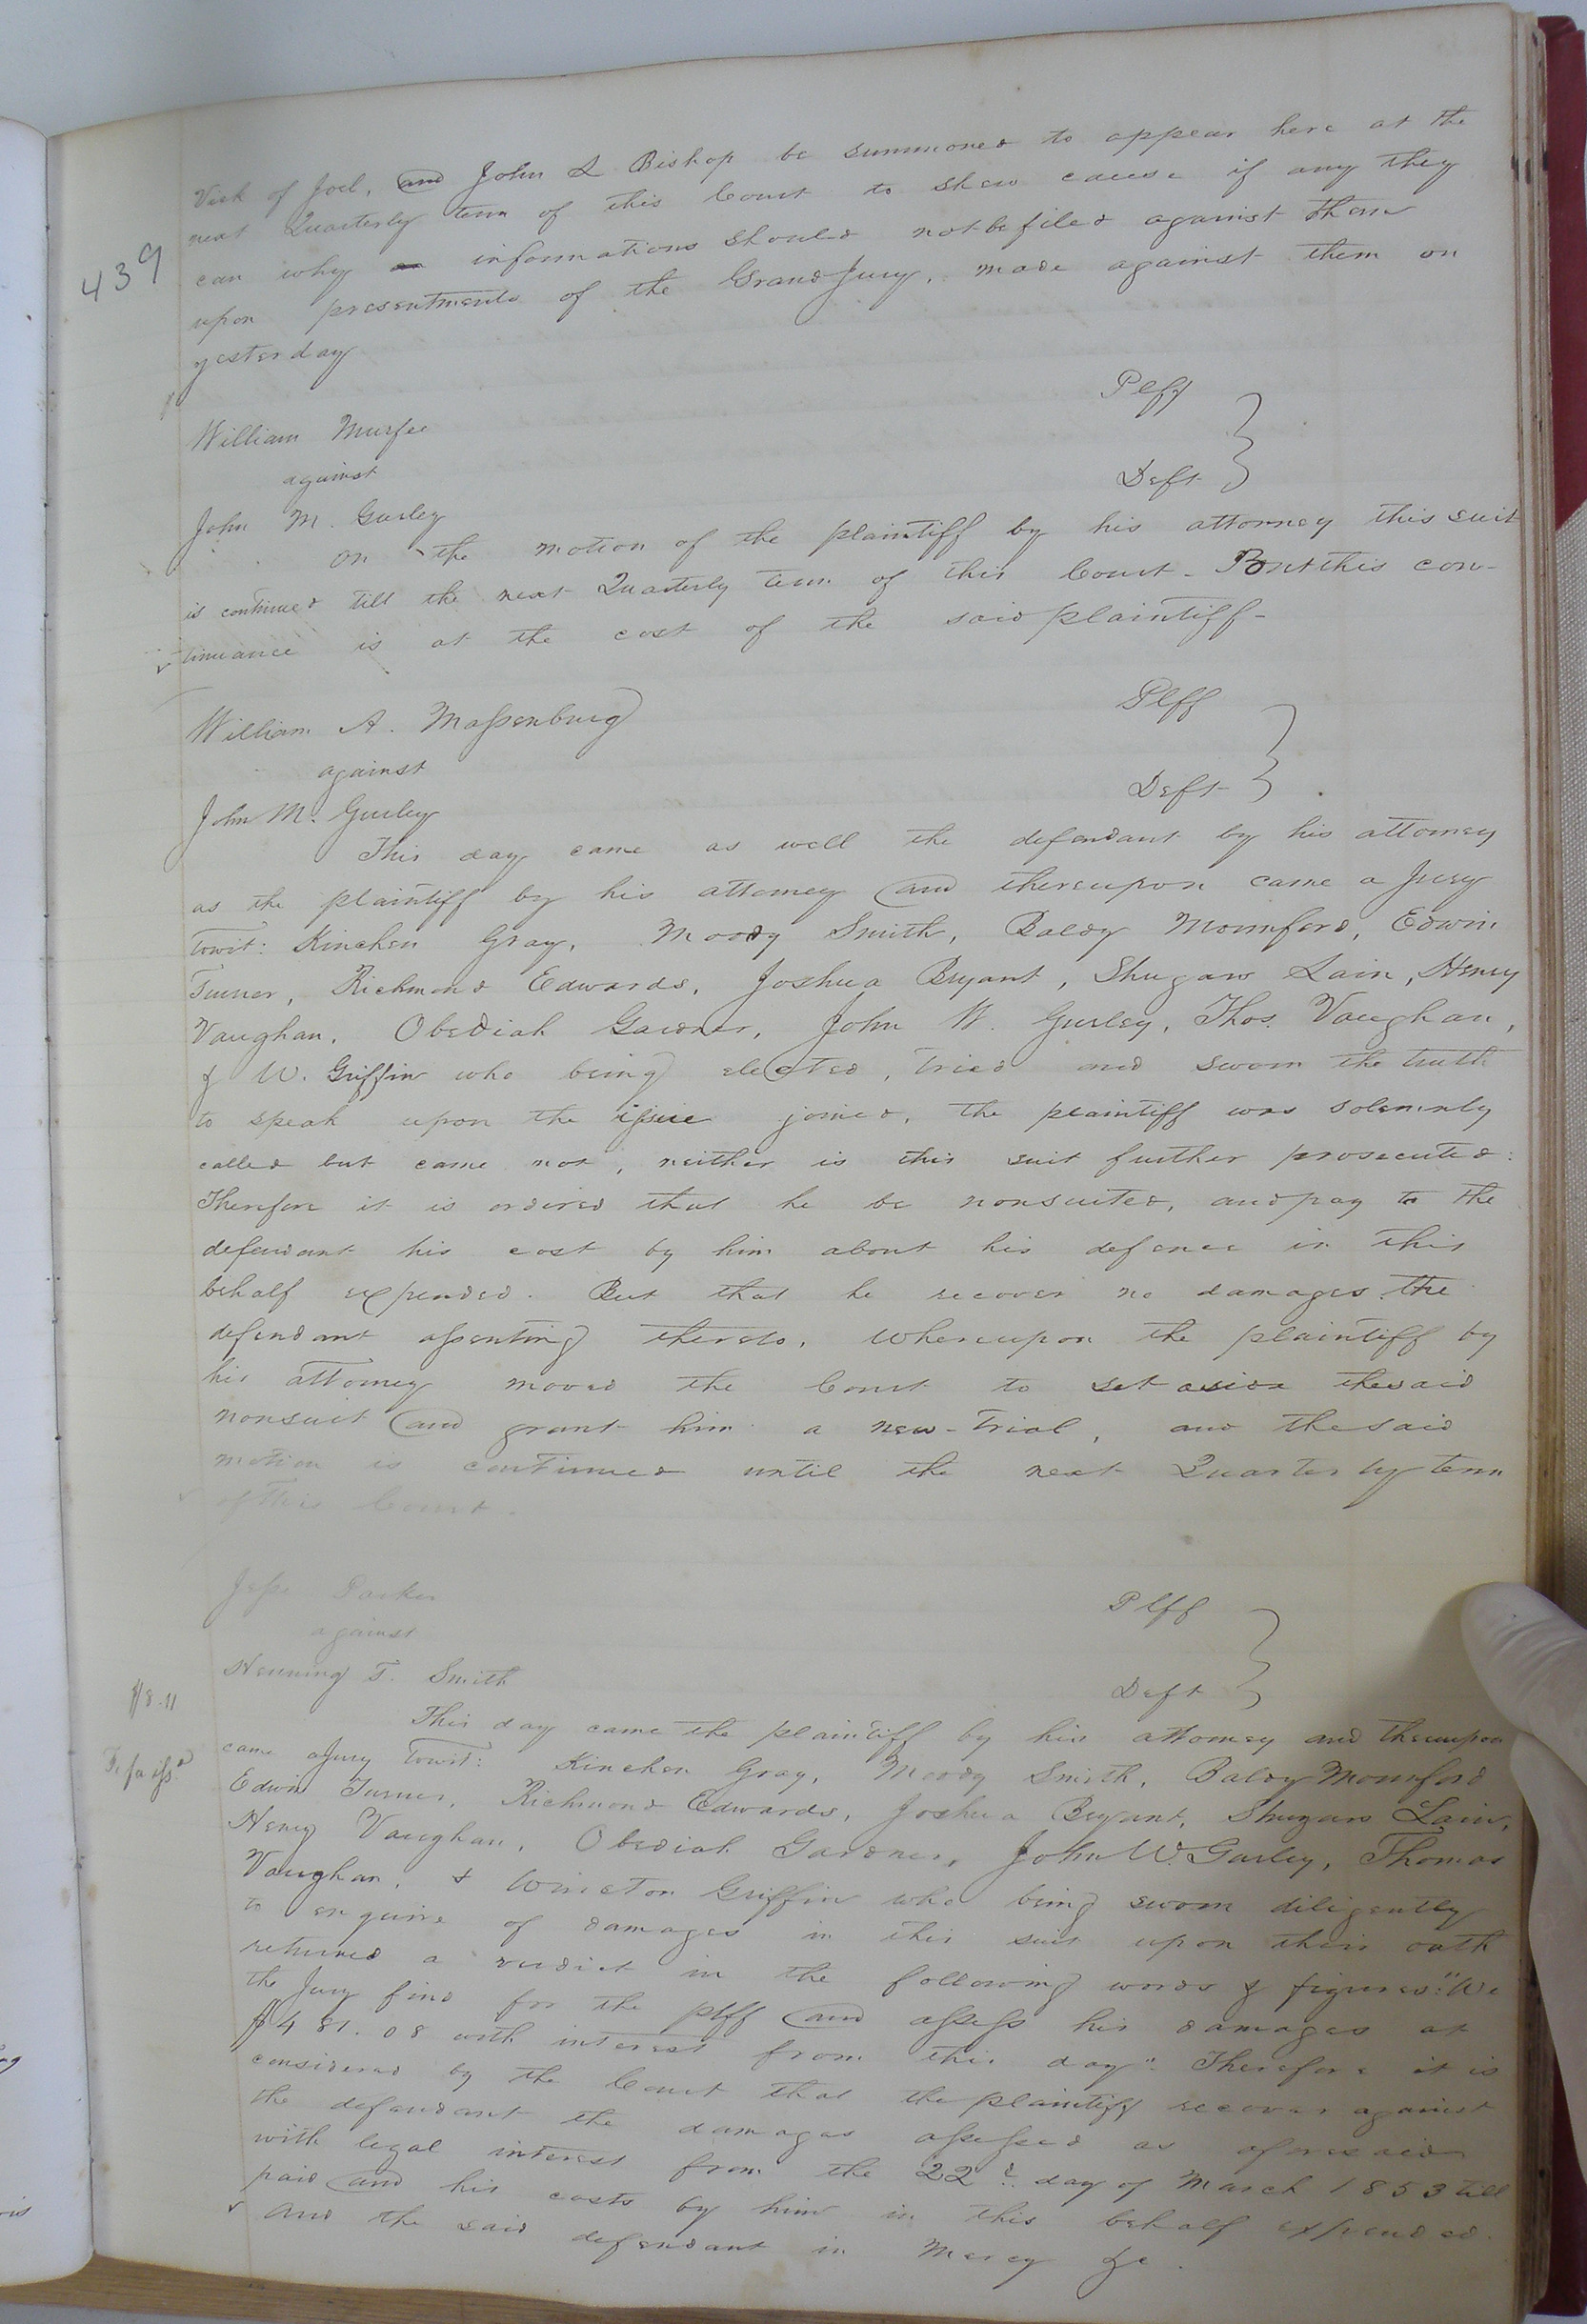 439
Vick of Joel, and John L Bishop be summoned to appear here at the
next Quarterly term of this Court to shew cause if any they
can why informations should not be filed against them
upon presentments of the Grand Jury, made against them on
yesterday
William Murfee Plff
against
John M. Gurley Deft
On the motion of the plaintiff by his attorney this suit
is continued till the next Quarterly term of this Court - But this con-
tinuance is at the cost of the said plaintiff -
William A. Massenburg Plff
against
John M. Gurley Deft
This day came as well the defendant by his attorney
as the plaintiff by his attorney and thereupon came a Jury
towit: Kinchen Gray, Moody Smith, Baldy Mounford, Edwin
Turner, Richmond Edwards, Joshua Bryant, Shugars Lain, Henry
Vaughan, Obediah Gardner, John W. Gurley, Thos. Vaughan,
& W. Griffin who being elected, tried and sworn the truth
to speak upon the issue joined, the plaintiff was solemnly
called but came not, neither is this suit further prosecuted:
Therefore it is ordered that he be nonsuited, and pay to the
defendant his cost by him about his defence in this
behalf expended. But that he recover no damages the
defendant assenting thereto, whereupon the plaintiff by
his attorney moved the Court to set aside the said
nonsuit and grant him a new-trial, and the said
motion is continued until the next Quarterly term
of this Court.
Jesse Parker Plff
against
Henning T. Smith Deft
$8.11
This day came the plaintiff by his attorney and thereupon
came a Jury towit: Kinchen Gray, Moody Smith, Baldy Mounford
Edwin Turner, Richmond Edwards, Joshua Bryant, Shugars Lain,
Henry Vaughan, Obediah Gardner, John W. Gurley, Thomas
Vaughan, & Winston Griffin who being sworn diligently
to enquire of damages in this suit upon their oath
returned a verdict in the following words & figures: "We
the Jury find for the plff and assess his damages at
$481.08 with interest from this day" Therefore it is
considered by the Court that the plaintiff recover against
the defendant the damages assessed as aforesaid
with legal interest from the 22d. day of March 1853 till
paid and his costs by him in this behalf expended.
And the said defendant in Mercy &c.